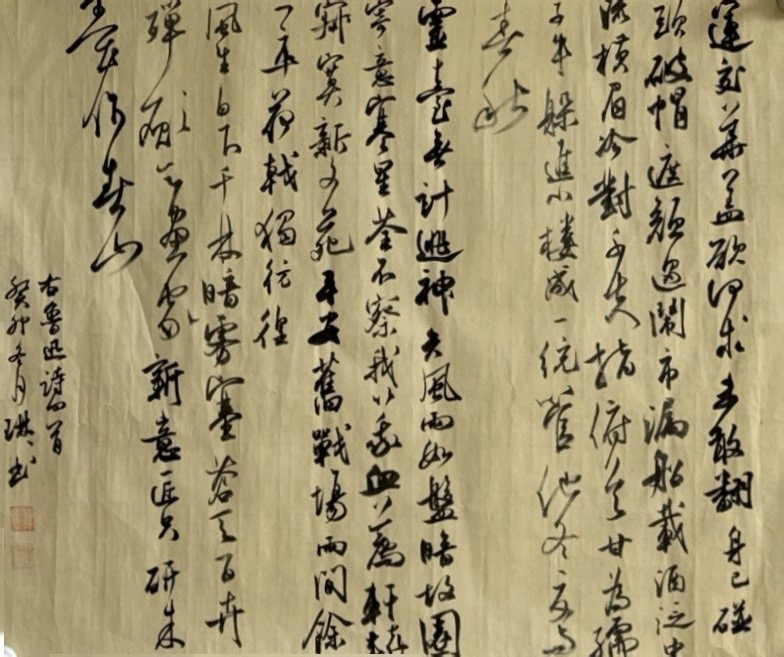 運交華蓋欲何求未敢翻身已碰
頭破帽遮顏過鬧市漏船載酒泛中
流橫眉冷對千夫指俯首甘為孺
子牛躲進小樓成一統管他冬夏與
春秋
靈臺無計逃神矢風雨如盤暗故園
寄意寒星荃不察我以我血薦軒轅
寂寞新文苑平安舊戰場兩間餘
一卒荷戟獨彷徨
風生白下千林暗霧塞蒼天百卉
殫願乞畫家新意匠只研朱
墨作春山
右魯迅詩四首
癸卯冬月琳书